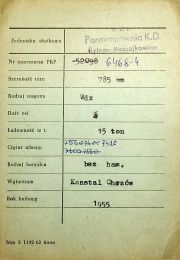 P.K.P.
Parowozownia K.D.
Bytom-Maciejkowice
Jednostka służbowa
Nr inwentarza PKP 52098 6468-4
Szerokość toru 785 mm
Rodzaj wagonu Wdx
Ilość osi 4
Ładowność w t. 15 ton
Ciężar własny
Rodzaj hamulca bez ham.
Wytwórnia Konstal Chorzów
Rok budowy 1955